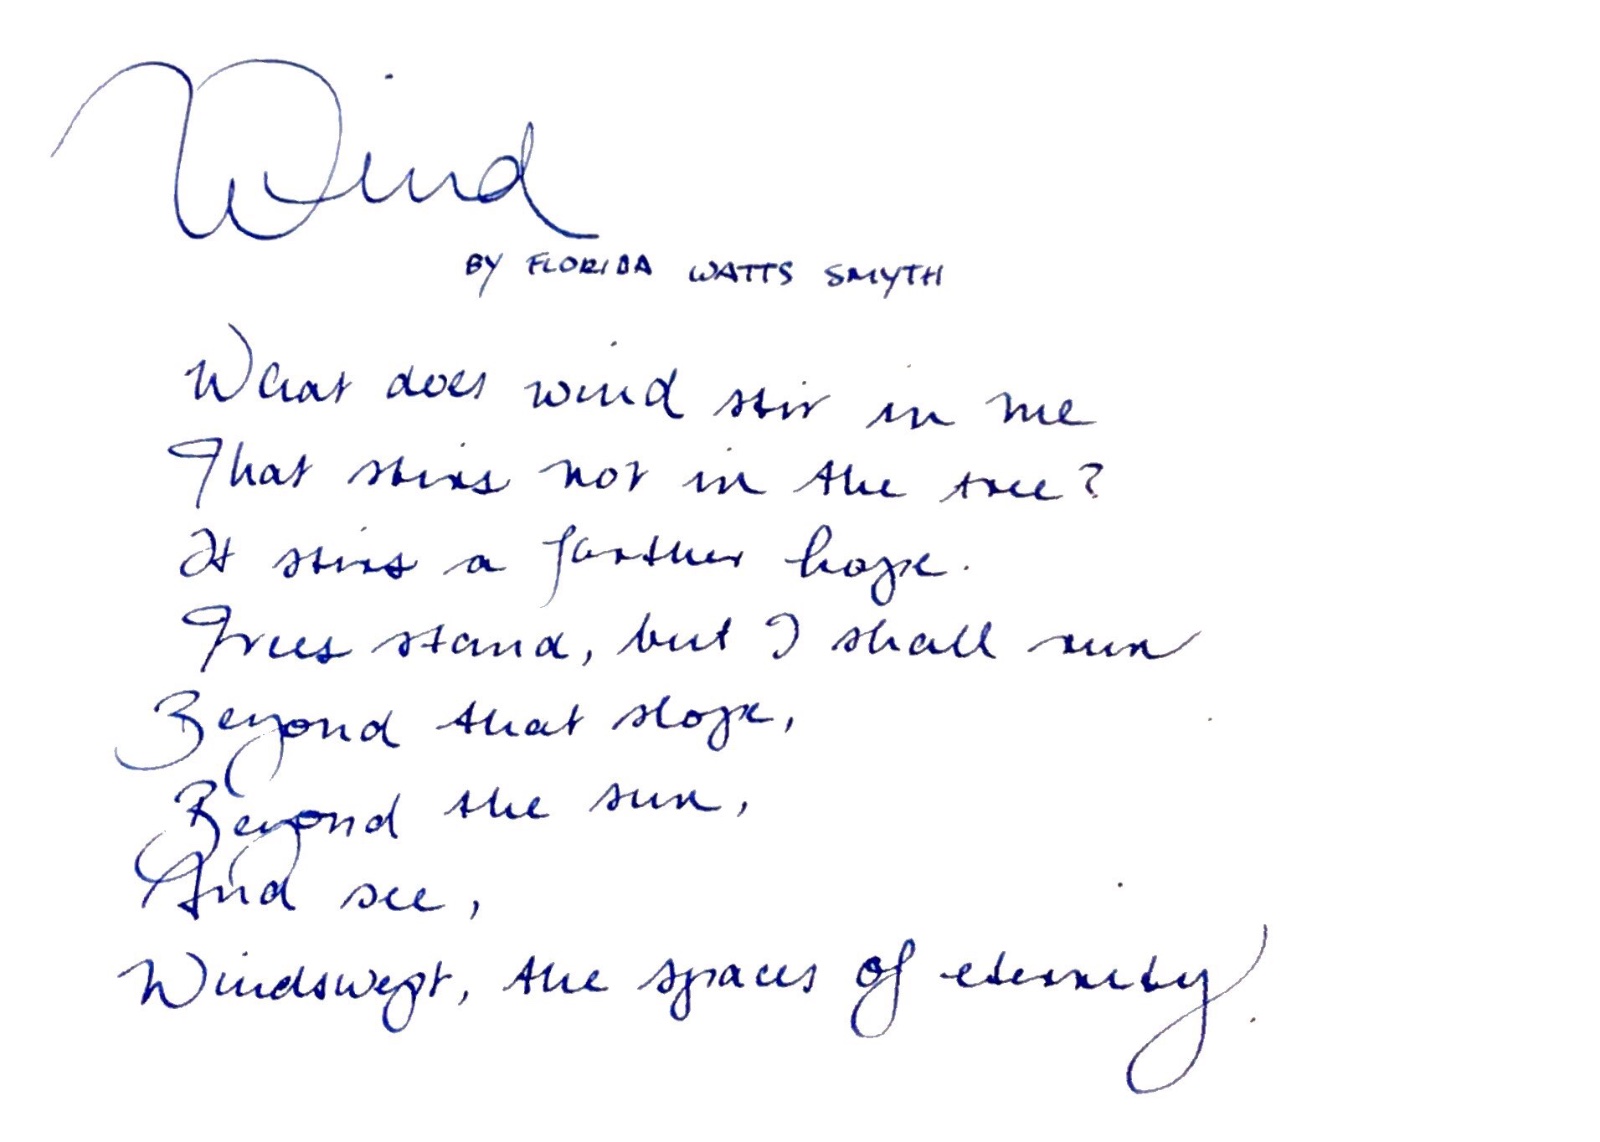 Wind
BY FLORIDA WATTS SMYTH
What does wind stir in me
That stirs not in the tree?
It stirs a farther hope.
Trees stand, but I shall run
Beyond that slope,
Beyond the sun,
And see,
Windswept, the spaces of eternity.